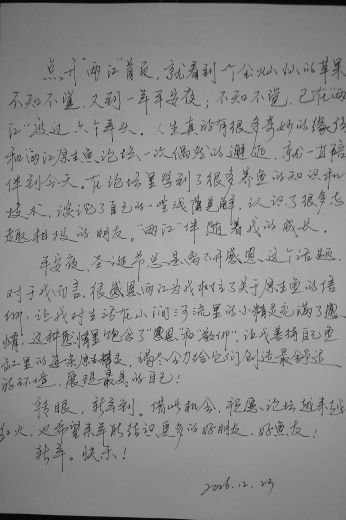 点开"两江"首页，就看到一个金灿灿的苹果
不知不觉，又到一年平安夜；不知不觉，已在"两
江"渡过六个年头。人生真的有很多奇妙的缘份
和两江原生鱼论坛一次偶然的邂逅，就一直陪
伴到今天。在论坛里学到了很多养鱼的知识和
技术，谈论了自己的一些浅薄见解，认识了很多志
趣相投的朋友。"两江"伴随着我的成长。
平安夜、圣诞节总是离不开感恩这个话题，
对于我而言，很感恩两江为我相传了关于原生鱼的信
仰，让我对生活在山间河流里的小精灵充满了
情，这种 情里饱含了"感恩"和"敬仰"，让我善待自己鱼
缸里的每条原生精灵，竭尽全力给它们创造最舒适
的环境，展现最美的自己！
转眼，新年到。借此机会，祝愿论坛越来越
红火，也希望来年能结识更多的好朋友，好鱼友！
新年。快乐！
12.23